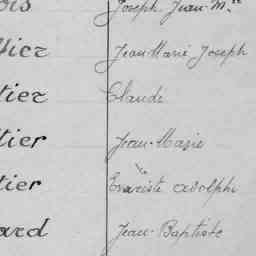 ois Joseph Jean-M.ie
llier Jean-Marie Joseph
tier Claude
tier Jean-Marie
tier Evariste Adolphe
ard Jean-Baptiste